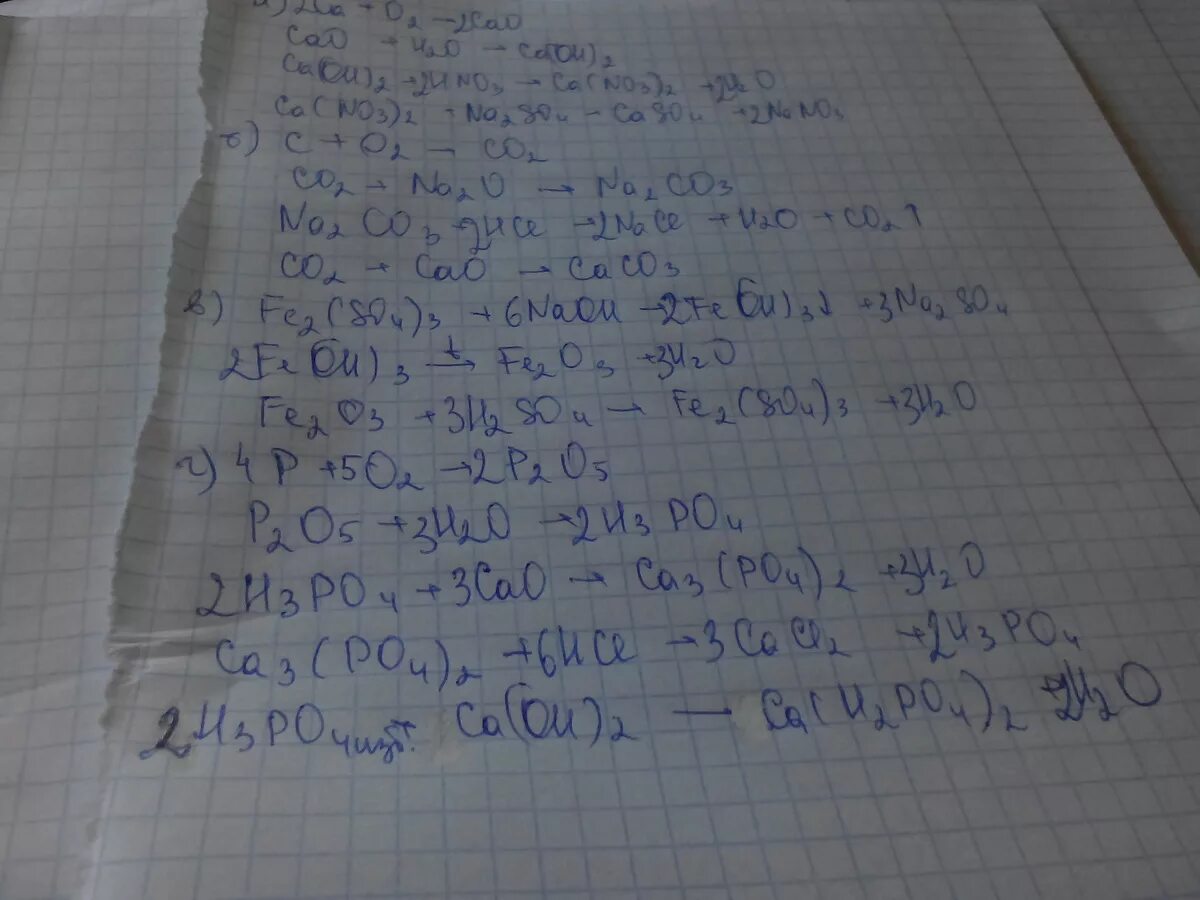 а) 2Ca + O2 → 2CaO
CaO + H2O → Ca(OH)2
Ca(OH)2 + 2HNO3 → Ca(NO3)2 + 2H2O
Ca(NO3)2 + Na2SO4 – CaSO4 + 2NaNO3
б) C + O2 – CO2
CO2 + Na2O → Na2CO3
Na2CO3 + 2HCl → 2NaCl + H2O + CO2↑
CO2 + CaO → CaCO3
в) Fe2(SO4)3 + 6NaOH → 2Fe(OH)3↓ + 3Na2SO4
2Fe(OH)3 t→ Fe2O3 + 3H2O
Fe2O3 + 3H2SO4 → Fe2(SO4)3 + 3H2O
г) 4P + 5O2 → 2P2O5
P2O5 + 3H2O → 2H3PO4
2H3PO4 + 3CaO → Ca3(PO4)2 + 3H2O
Ca3(PO4)2 + 6HCl → 3CaCl2 + 2H3PO4
2H3PO4 изб. + Ca(OH)2 — Ca(H2PO4)2 + 2H2O